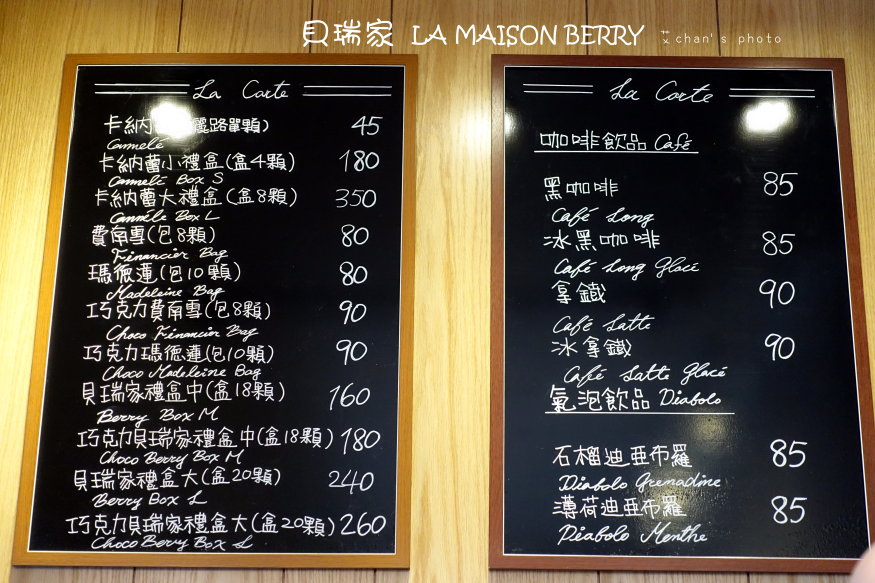 貝瑞家 LA MAISON BERRY 艾chan's photo
La Carte
卡納 單顆) 45
Cannelé
卡納蕾小禮盒(盒4顆) 180
Cannelé Box S
卡納蕾大禮盒(盒8顆) 350
Cannéle Box L
費南雪(包8顆) 80
Financier Bag
瑪德蓮(包10顆) 80
Madeleine Bag
巧克力費南雪(包8顆) 90
Choco Financier Bag
巧克力瑪德蓮(包10顆) 90
Choco Madeleine Bag
貝瑞家禮盒中(盒18顆) 160
Berry Box M
巧克力貝瑞家禮盒中(盒18顆) 180
Choco Berry Box M
貝瑞家禮盒大(盒20顆) 240
Berry Box L
巧克力貝瑞家禮盒大(盒20顆) 260
Choco Berry Box L
La Carte
咖啡飲品 Café
黑咖啡 85
Café Long
冰黑咖啡 85
Café Long Glacé
拿鐵 90
Café Latte
冰拿鐵 90
Café Latte Glacé
氣泡飲品 Diabolo
石榴迪亞布羅 85
Diabolo Grenadine
薄荷迪亞布羅 85
Diabolo Menthe